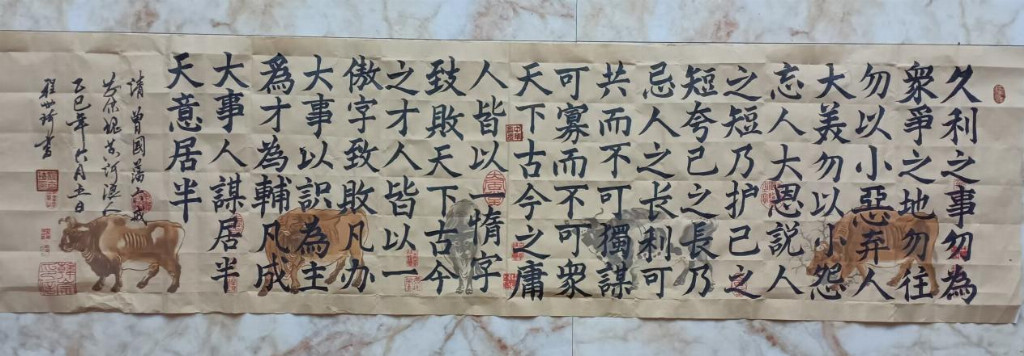 久利之事勿為
衆爭之地勿往
勿以小惡弃人
大美勿以小怨
忘人大恩説人
之短乃护己之
短夸己之長乃
忌人之长利可
共而不可獨謀
可寡而不可衆
天下古今之庸
人皆以惰字
致敗天下古今
之才人皆以一
傲字致敗凡办
大事以識為主
爲才為輔凡成
大事人謀居半
天意居半
曾國藩六戒
乙巳年六月五日
書